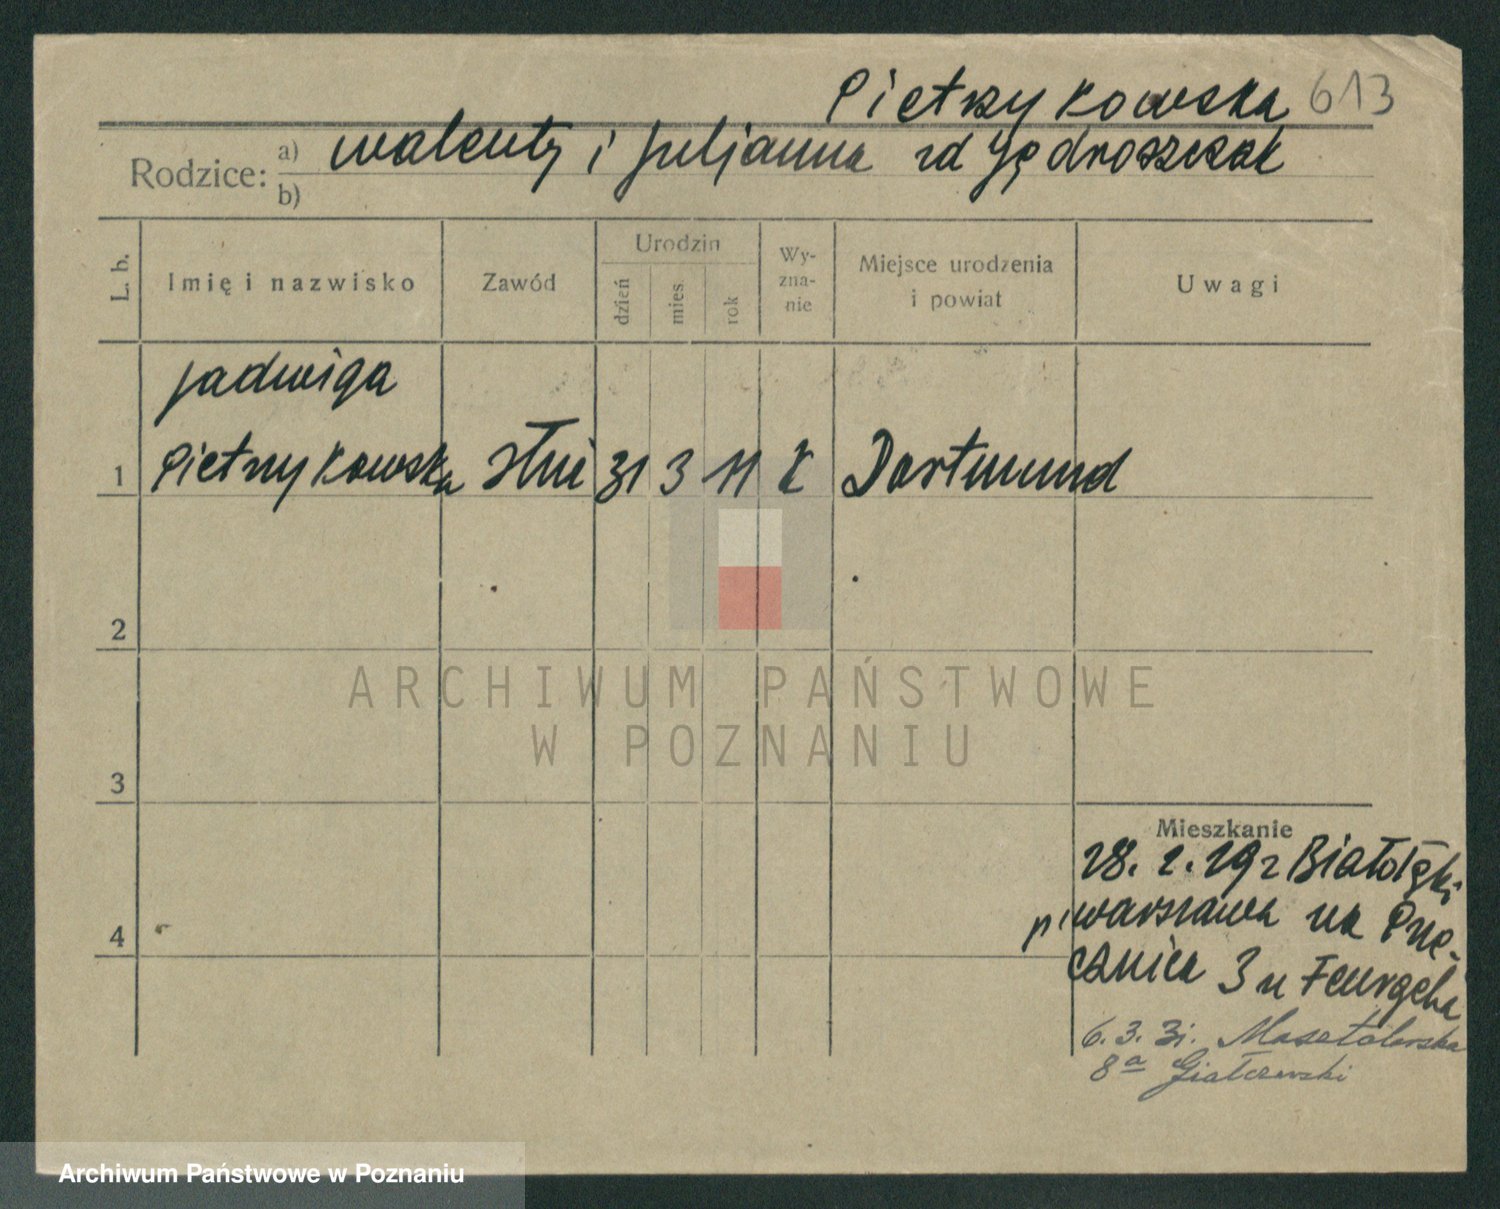 Pietrzykowska 613
Rodzice: a) Walenty i Juljanna zd Jędroszczak
b)
L. b.
Imię i nazwisko
Zawód
Urodzin
dzień
mies.
rok
Wy-
zna-
nie
Miejsce urodzenia
i powiat
Uwagi
Jadwiga
1 Pietrzykowska służ 31 3 11 k Dortmund
2
3
4
Mieszkanie
28. 2. 29 z Białołęki
p/Warszawa na Przę-
cznica 3 u
6. 3. 31. Masztalarska
8a
ARCHIWUM PAŃSTWOWE
W POZNANIU
Archiwum Państwowe w Poznaniu